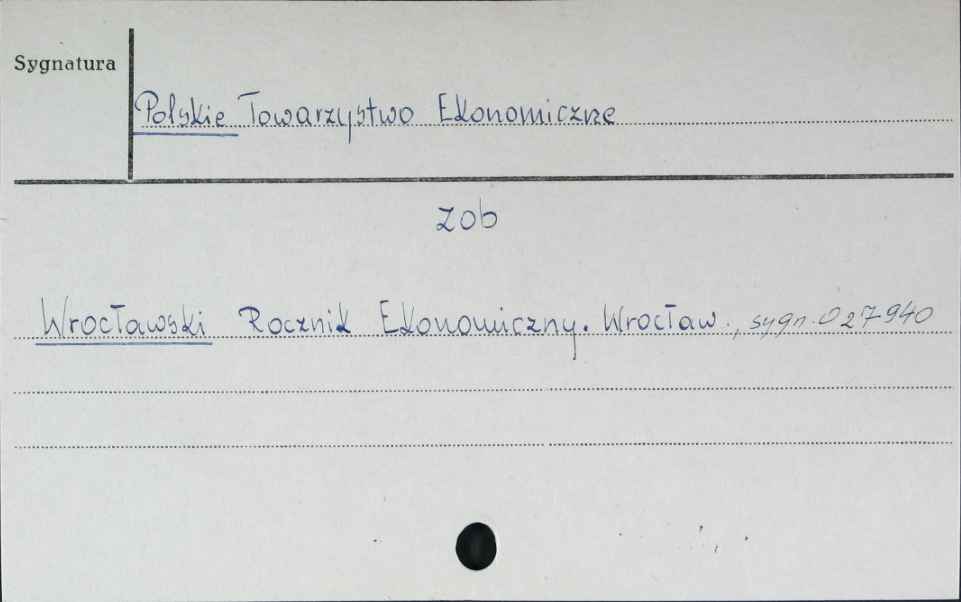 Sygnatura
Polskie Towarzystwo Ekonomiczne
zob
Wrocławski Rocznik Ekonomiczny. Wrocław., sygn. 027940